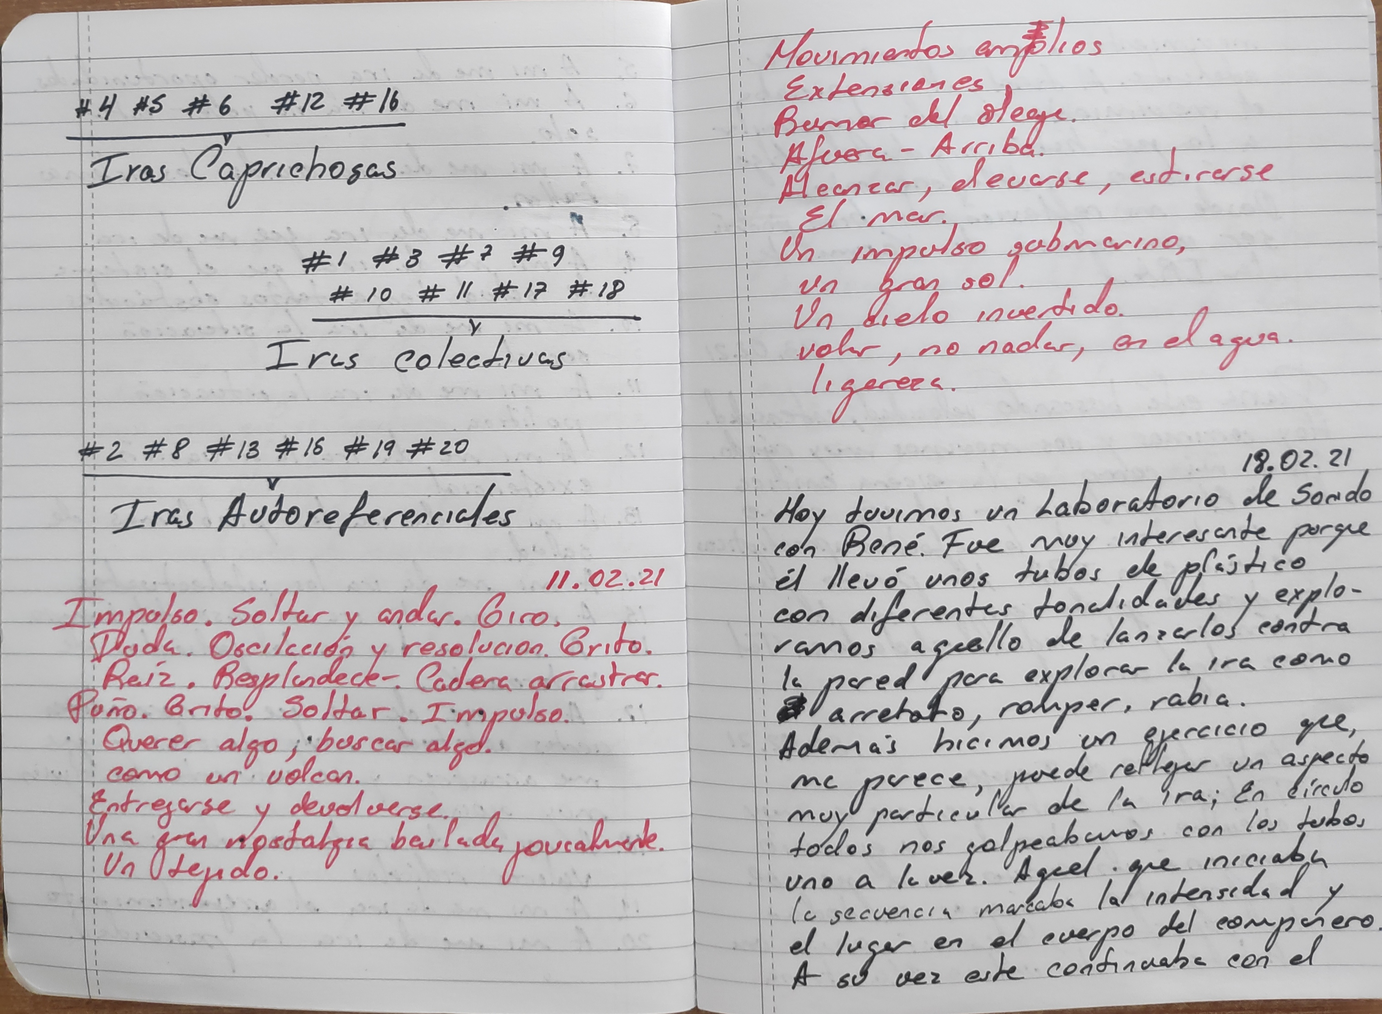 #4 #5 #6 #12 #16
Iras Caprichosas
#1 #3 #7 #9
#10 #11 #17 #18
Iras colectivas
#2 #8 #13 #15 #19 #20
Iras Autoreferenciales
11.02.21
Impulso. Soltar y andar. Giro.
Duda. Oscilación y resolucion. Grito.
Raíz. Resplandecer. Cadera arrastrar.
Puño. Grito. Soltar. Impulso.
Querer algo, buscar algo.
como un volcan.
Entregarse y devolverse.
Una gran nostalgia bailada
Un tejido.
Movimientos amplios
Extensiones
Rumor del oleaje.
Afuera - Arriba.
Alcanzar, elevarse, estirarse
El mar.
Un impulso submarino,
un gran sol.
Un cielo invertido.
volar, no nadar, en el agua.
ligereza.
18.02.21
Hoy tuvimos un Laboratorio de Sonido
con René. Fue muy interesante porque
él llevó unos tubos de plástico
con diferentes tonalidades y explo-
ramos aquello de lanzarlos contra
la pared para explorar la ira como
arrebato, romper, rabia.
Además hicimos un ejercicio que,
me parece, puede reflejar un aspecto
muy particular de la ira; En círculo
todos nos golpeabamos con los tubos
uno a la vez. Aquel que iniciaba
la secuencia marcaba la intensidad y
el lugar en el cuerpo del compañero.
A su vez este continuaba con el